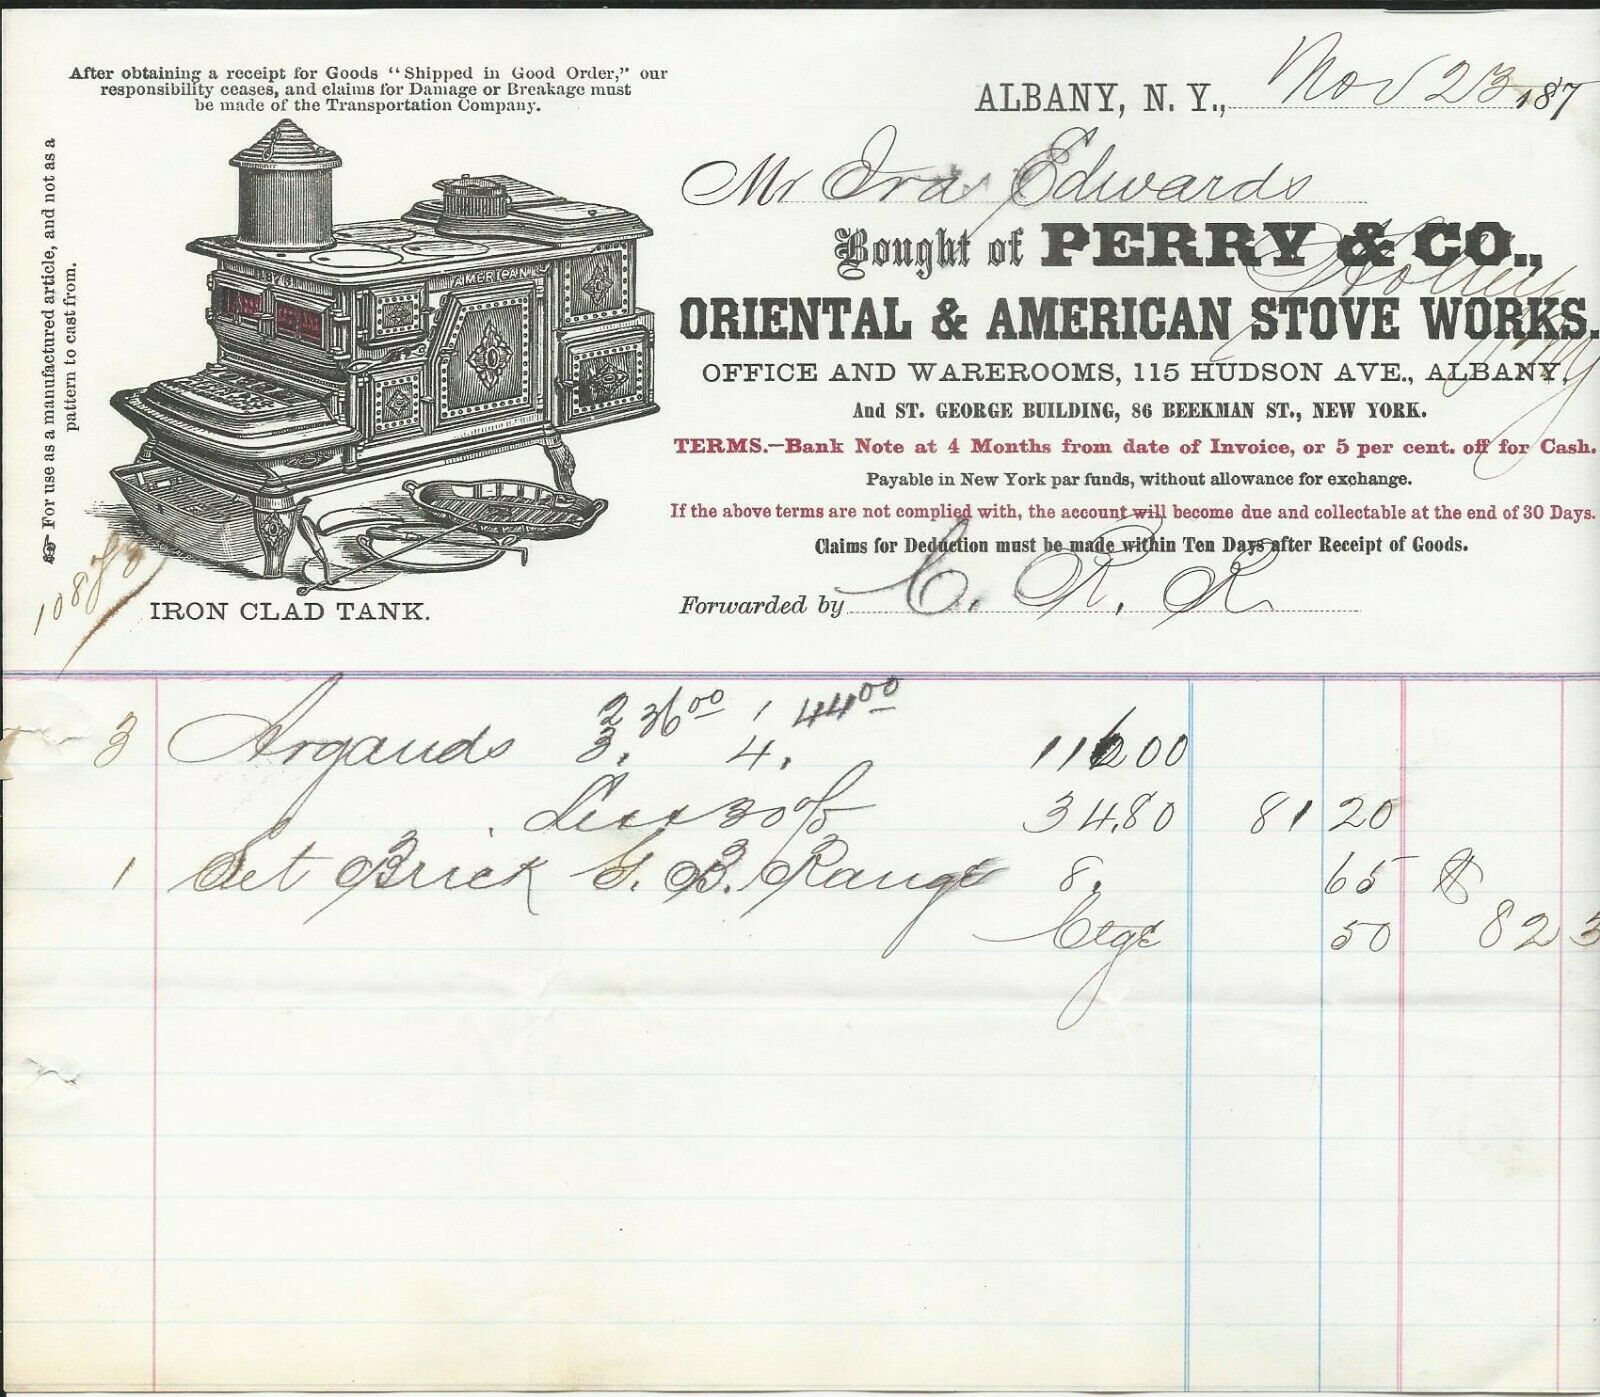 After obtaining a receipt for Goods "Shipped in Good Order," our
responsibility ceases, and claims for Damage or Breakage must
be made of the Transportation Company.
☞ For use as a manufactured article, and not as a
pattern to cast from.
AMERICAN
IRON CLAD TANK.
ALBANY, N. Y., Nov 23, 187
Mr Ira Edwards
Holley
N.Y.
Bought of PERRY & CO.,
ORIENTAL & AMERICAN STOVE WORKS.
OFFICE AND WAREROOMS, 115 HUDSON AVE., ALBANY,
And ST. GEORGE BUILDING, 86 BEEKMAN ST., NEW YORK.
TERMS.—Bank Note at 4 Months from date of Invoice, or 5 per cent. off for Cash.
Payable in New York par funds, without allowance for exchange.
If the above terms are not complied with, the account will become due and collectable at the end of 30 Days.
Claims for Deduction must be made within Ten Days after Receipt of Goods.
Forwarded by C. R. R
3 Argands 2/3. 36 00 1/4. 44 00 116 00
Less 30 % 34.80 81 20
1 Set Brick G. B. Range 8. 65 $
Ctge 50 82 3